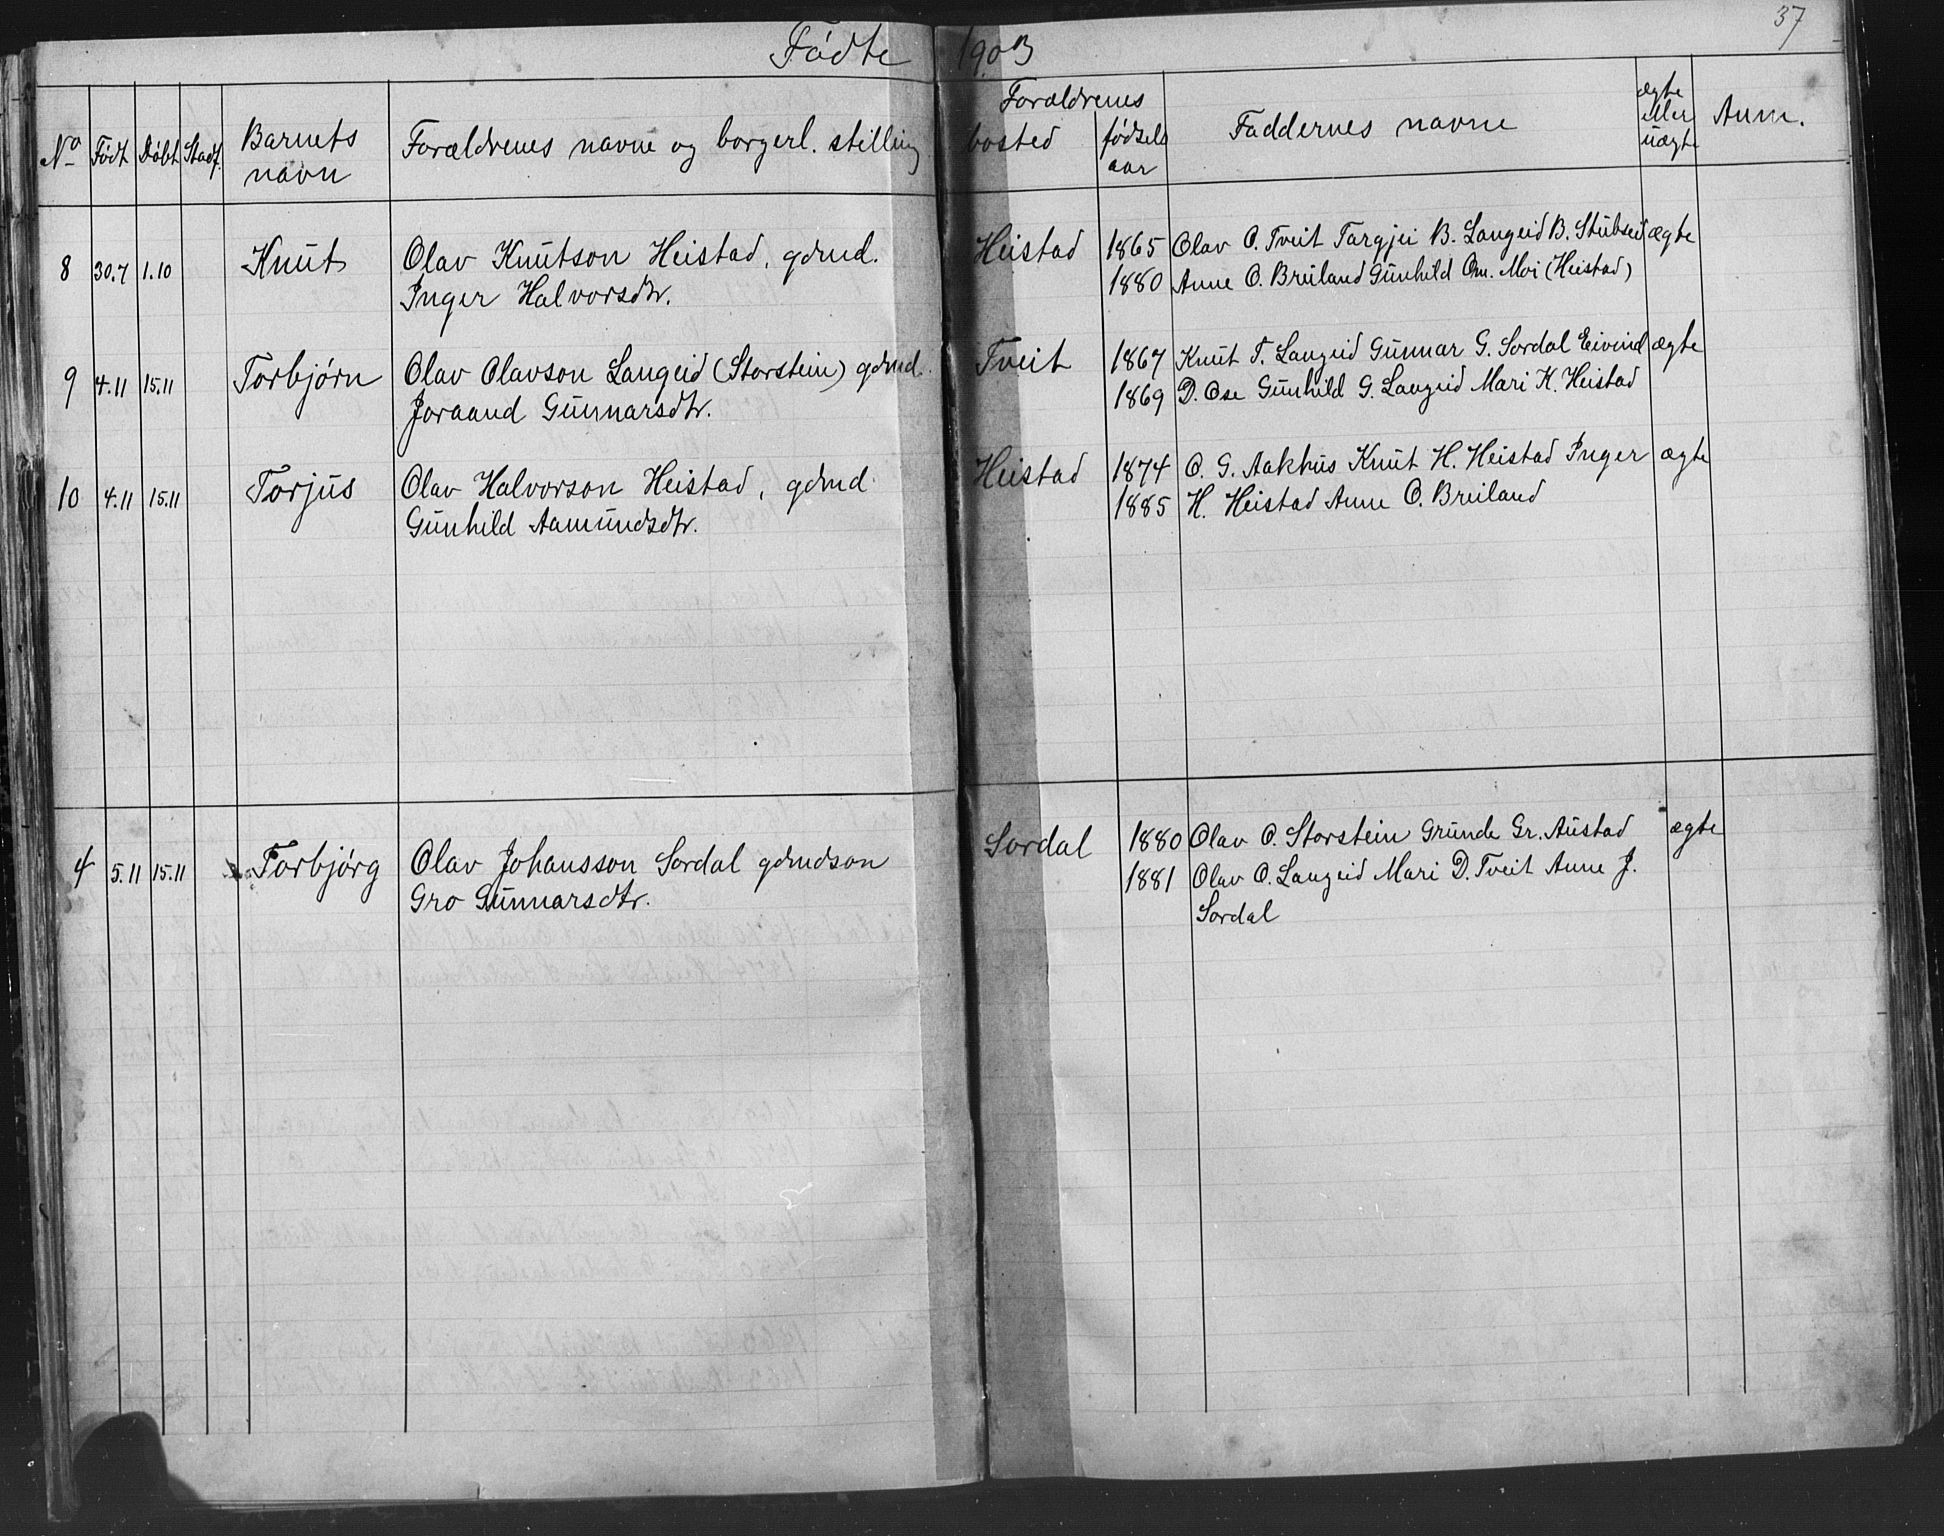 37
Fødte 1903
No Født Døbt Stadf. Barnets navn Forældrenes navne og borgerl. stilling Forældrenes bosted fødsels aar Faddernes navne ægte eller uægte Anm.
8 30.7 1.10 Knut Olav Knutson Heistad, gdmd. Heistad 1865 Olav O. Tveit Targjei B. Langeid B. Stubseid ægte
Inger Halvorsdtr. 1880 Anne O. Breiland Gunhild Om. Moi (Heistad)
9 4.11 15.11 Torbjørn Olav Olavson Langeid (Storstein) gdmd. Tveit 1867 Knut T. Langeid Gunnar G. Sordal Eivind ægte
Joraand Gunnarsdtr. 1869 D. Ose Gunhild G. Langeid Mari K. Heistad
10 4.11 15.11 Torjus Olav Halvorson Heistad, gdmd. Heistad 1874 O. G. Aakhus Knut H. Heistad Inger ægte
Gunhild Aamundsdtr. 1885 H. Heistad Anne O. Breiland
4 5.11 15.11 Torbjørg Olav Johansson Sordal gdmdson Sordal 1880 Olav O. Storstein Grunde Gr. Austad ægte
Gro Gunnarsdtr. 1881 Olav O. Langeid Mari D. Tveit Anne J.
Sordal